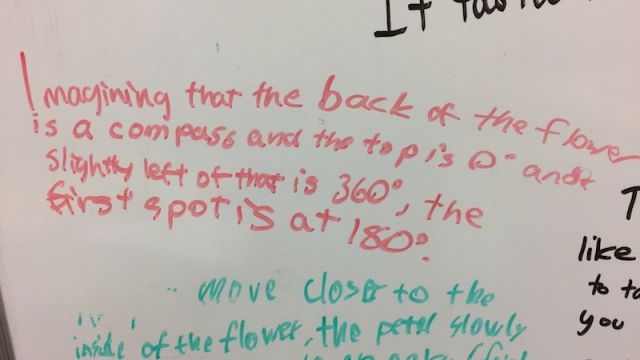 It
Imagining that the back of the flower
is a compass and the top is 0° and
slightly left of that is 360°, the
first spot is at 180°.
move closer to the
inside of the flower, the petal slowly
like
to
you